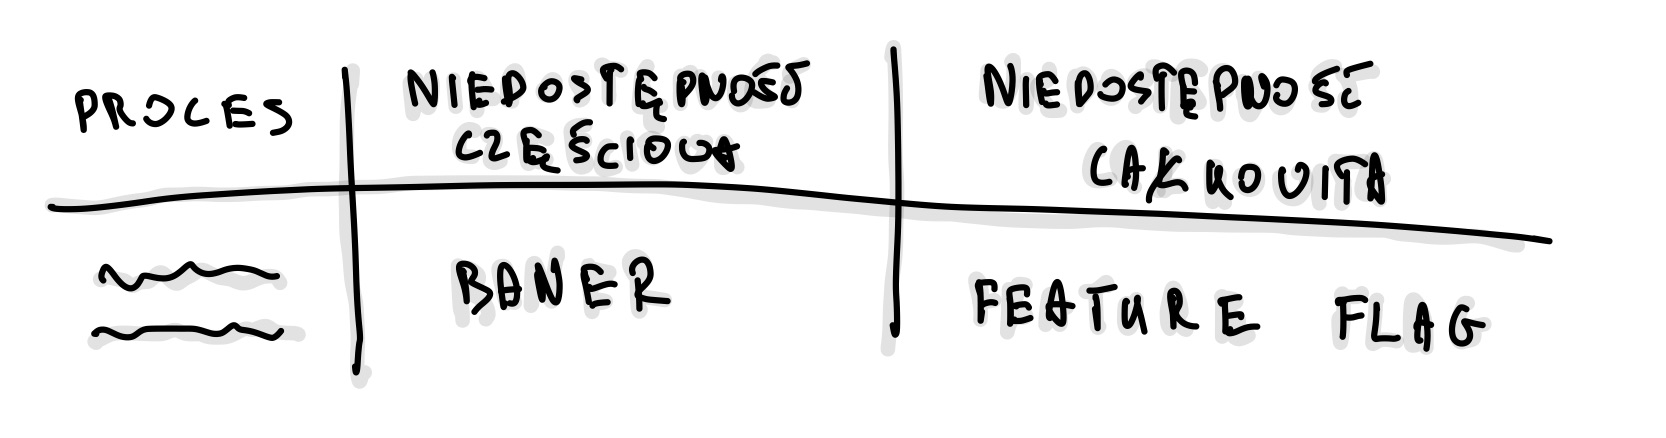 PROCES
NIEDOSTĘPNOŚĆ
CZĘŚCIOWA
NIEDOSTĘPNOŚĆ
CAŁKOWITA
BANER
FEATURE FLAG